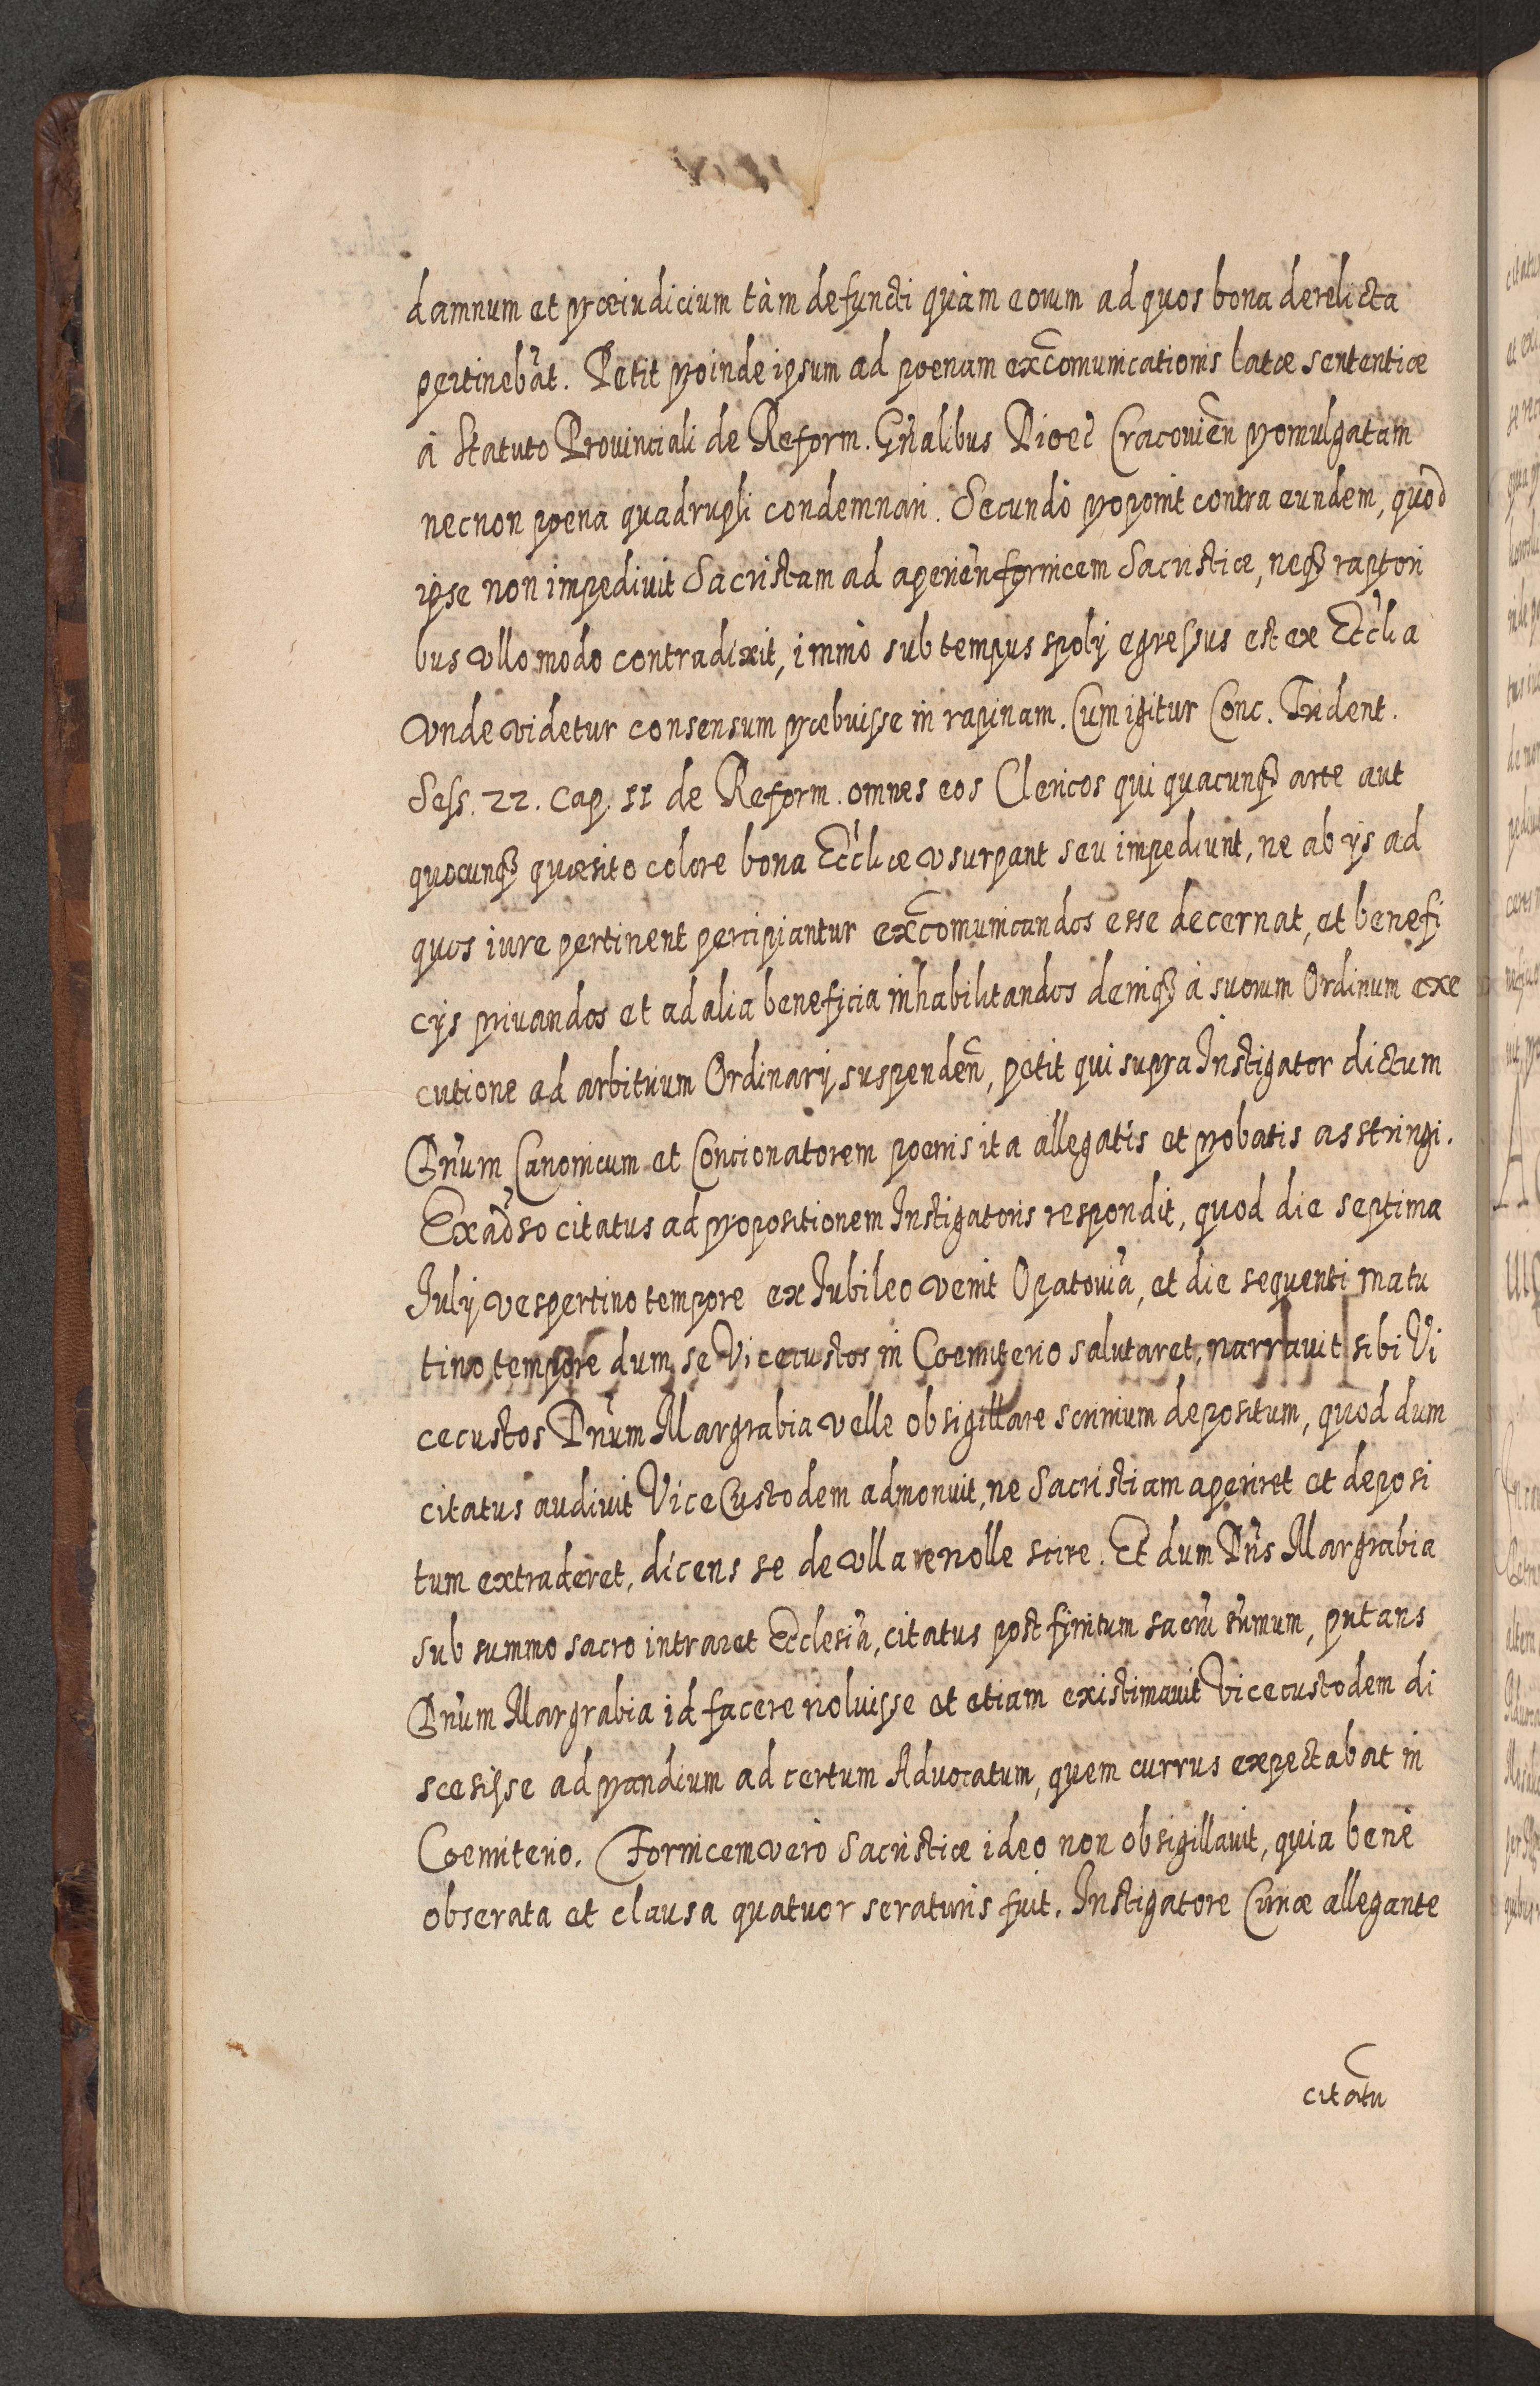 damnum et præiudicium tàm defuncti quàm eorum ad quos bona derelicta
pertinebãt. Petit proinde ipsum ad poenam excõmunicationis latæ sententiæ
à Statuto Prouinciali de Reform. Gñalibus Dioec̃ Cracouieñ promulgatam
necnon poena quadrupli condemnari. Secundò proponit contra eundem, quod
ipse non impediuit Sacristam ad aperieñ fornicem Sacristiæ, neqʒ raptori
bus vllo modo contradixit, immò sub tempus spolij egressus est ex Eccl̃ia
vnde videtur consensum præbuisse in rapinam. Cum igitur Conc. Trident.
Sess. 22. Cap. 11 de Reform. omnes eos Clericos qui quacunqʒ arte aut
quocunqʒ quæsito colore bona Eccl̃iæ vsurpant seu impediunt, ne ab ijs ad
quos iure pertinent percipiantur excõmunicandos esse decernat, et benefi
cijs priuandos et ad alia beneficia inhabilitandos deniqʒ à suorum Ordinum exe
cutione ad arbitrium Ordinarij suspendeñ, petit qui supra Instigator dictum
Dñum Canonicum et Concionatorem poenis ita allegatis et probatis asstringi.
Ex aduẽso citatus ad propositionem Instigatoris respondit, quod die septima
Iulij vespertino tempore ex Iubileo venit Opatouiã, et die sequenti matu
tino tempore dum se Vicecustos in Coemiterio salutaret, narrauit sibi Vi
cecustos Dñum Margrabia velle obsigillare scrinium depositum, quod dum
citatus audiuit ViceCustodem admonuit, ne Sacristiam aperiret et deposi
tum extraderet, dicens se de vlla re nolle scire. Et dum Dñs Margrabia
sub summo sacro intraret Ecclesiã, citatus post finitum sacrũ sũmum, putans
Dñum Margrabia id facere noluisse et etiam existimauit Vicecustodem di
scesisse ad prandium ad certum Aduocatum, quem currus expectabat in
Coemiterio. Fornicem verò Sacristiæ ideo non obsigillauit, quia benè
obserata et clausa quatuor seraturis fuit. Instigatore Curiæ allegante
citatũ